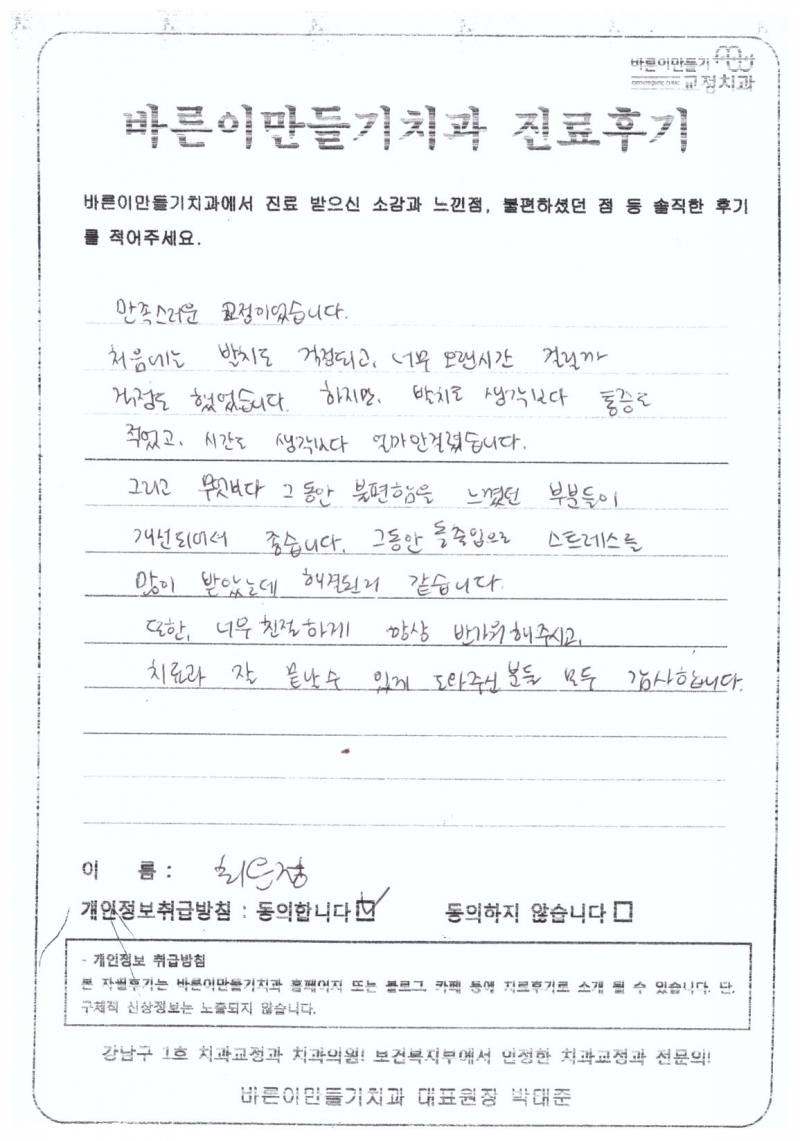 바른이만들기
교정치과
바른이만들기치과 진료후기
바른이만들기치과에서 진료 받으신 소감과 느낀점, 불편하셨던 점 등 솔직한 후기
를 적어주세요.
만족스러운 교정이었습니다.
처음에는 발치도 걱정되고, 너무 오랜시간 걸릴까
걱정도 했었습니다. 하지만, 발치도 생각보다 통증도
적었고, 시간도 생각보다 얼마안걸렸습니다.
그리고 무엇보다 그동안 불편함을 느꼈던 부분들이
개선되어서 좋습니다. 그동안 돌출입으로 스트레스를
많이 받았는데 해결된거 같습니다.
또한, 너무 친절하게 항상 반가워해주시고,
치료과 잘 끝난수 있게 도와주신 분들 모두 감사합니다.
이 름 : 최은정
개인정보취급방침 : 동의합니다 동의하지 않습니다
- 개인정보 취급방침
본 자필후기는 바른이만들기치과 홈페이지 또는 블로그 카페 등에 치료후기로 소개 될 수 있습니다. 단,
구체적 신상정보는 노출되지 않습니다.
강남구 1호 치과교정과 치과의원! 보건복지부에서 인정한 치과교정과 전문의!
바른이만들기치과 대표원장 박태준